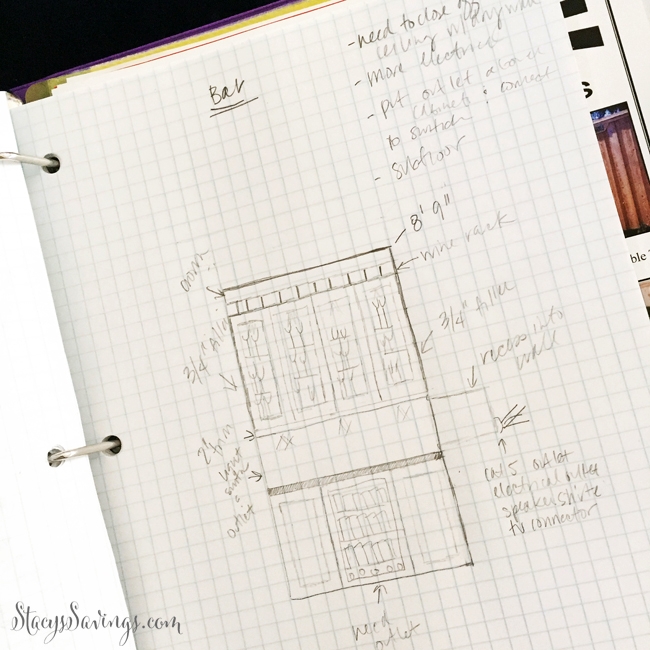 Bar
-need to close off
ceiling w/
-more electrical
-put outlet
cabinets
connect
to switch
- subfloor
8' 9"
wine rack
crown
3/4" filler
3/4" filler
recess into
wall
2" trim
switch
outlet
cat 5 outlet
electrical outlet
speaker
tv connector
need
outlet
S
ble
StacysSavings.com